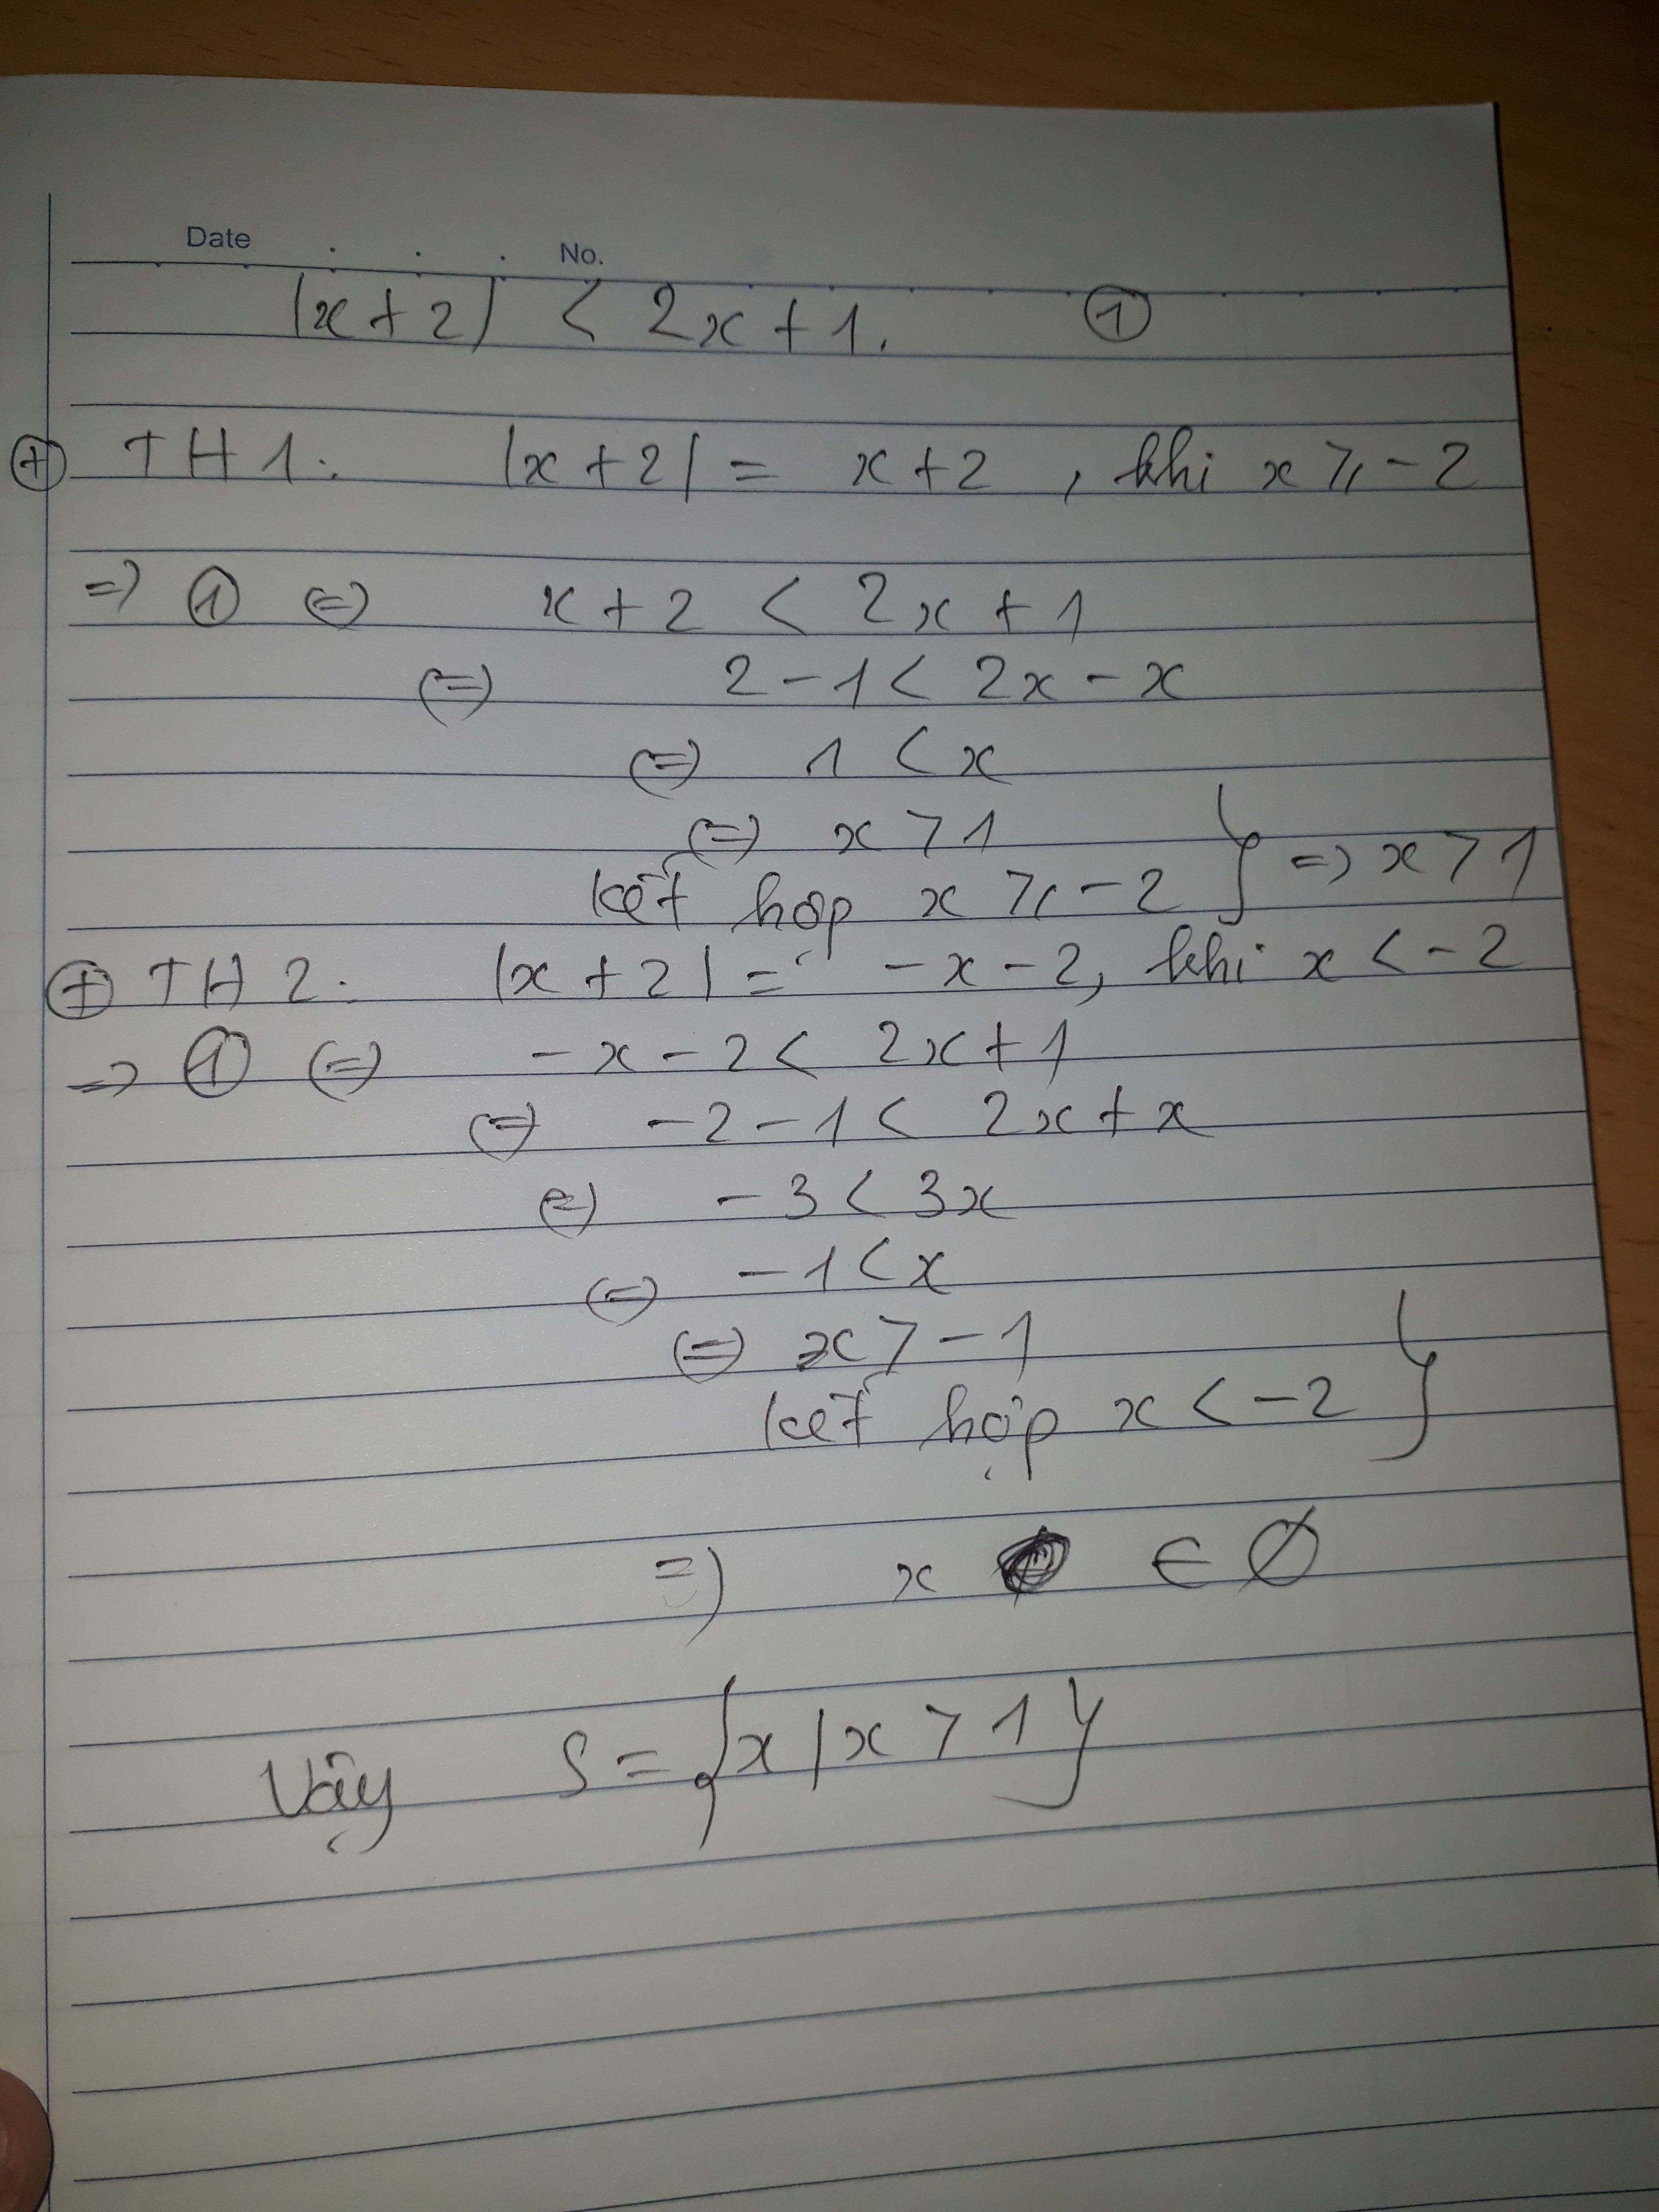 Date No.
|x+2| < 2x+1. ①
⊕ TH1: |x+2| = x+2, khi x ≥ -2
=> ① <=> x+2 < 2x+1
<=> 2-1 < 2x-x
<=> 1 < x
<=> x > 1
kết hợp x ≥ -2 } => x > 1
⊕ TH2: |x+2| = -x-2, khi x < -2
=> ① <=> -x-2 < 2x+1
<=> -2-1 < 2x+x
<=> -3 < 3x
<=> -1 < x
<=> x > -1
kết hợp x < -2 }
=> x ∈ ∅
Vậy S = {x | x > 1}